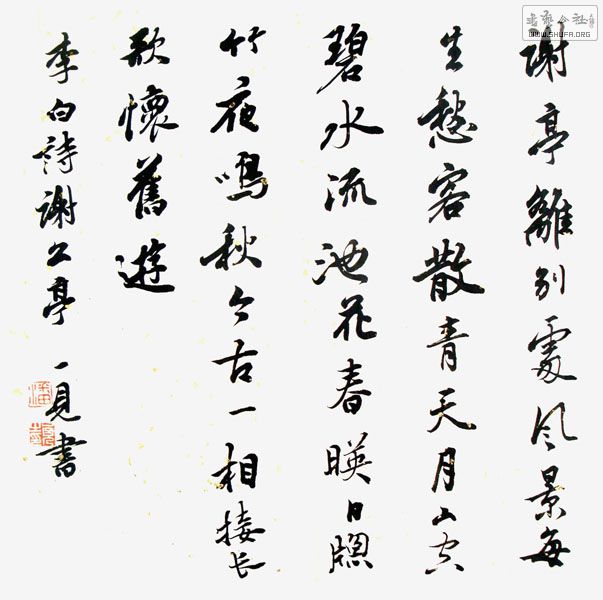 謝亭離別處風景每
生愁客散青天月山空
碧水流池花春暎日牕
竹夜鳴秋今古一相接長
歌懷舊遊
李白詩謝公亭 一見書
書藝公社
WWW.SHUFA.ORG